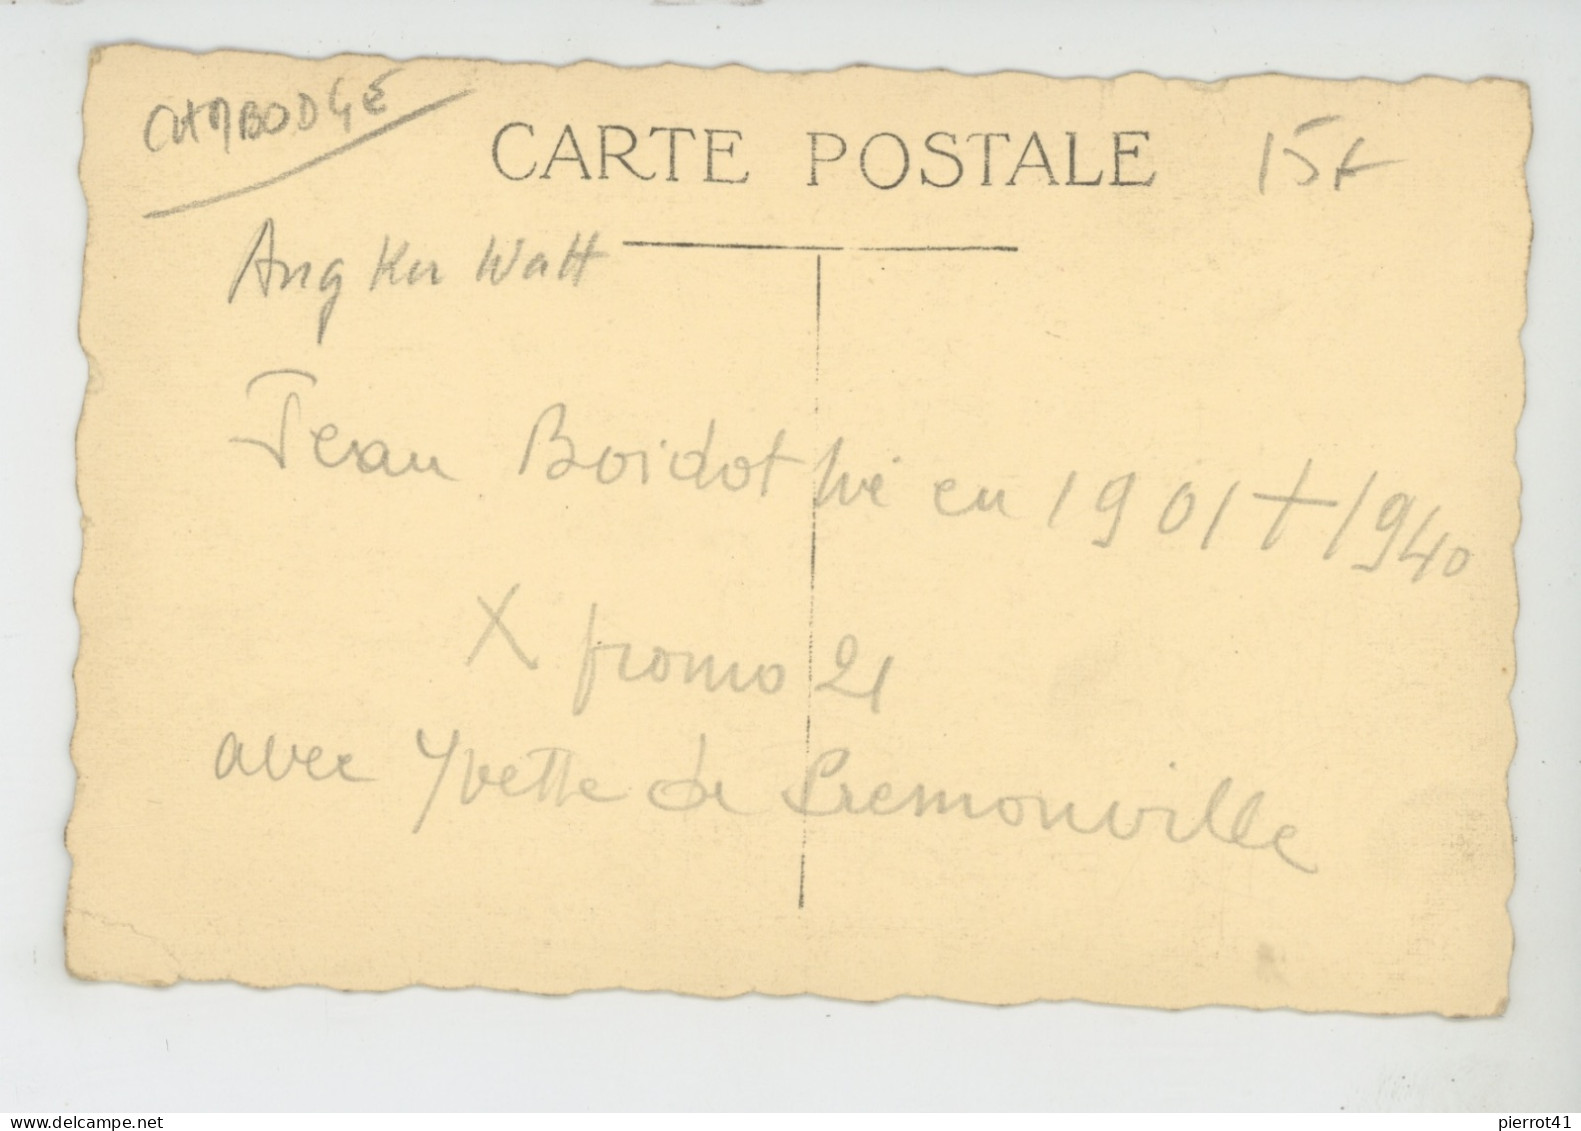 CAMBODGE
CARTE POSTALE
15F
Angkor Watt
Jean Boidot né en 1901 + 1940
X promo 21
avec Yvette de Cremonville
delcampe.net
pierrot41